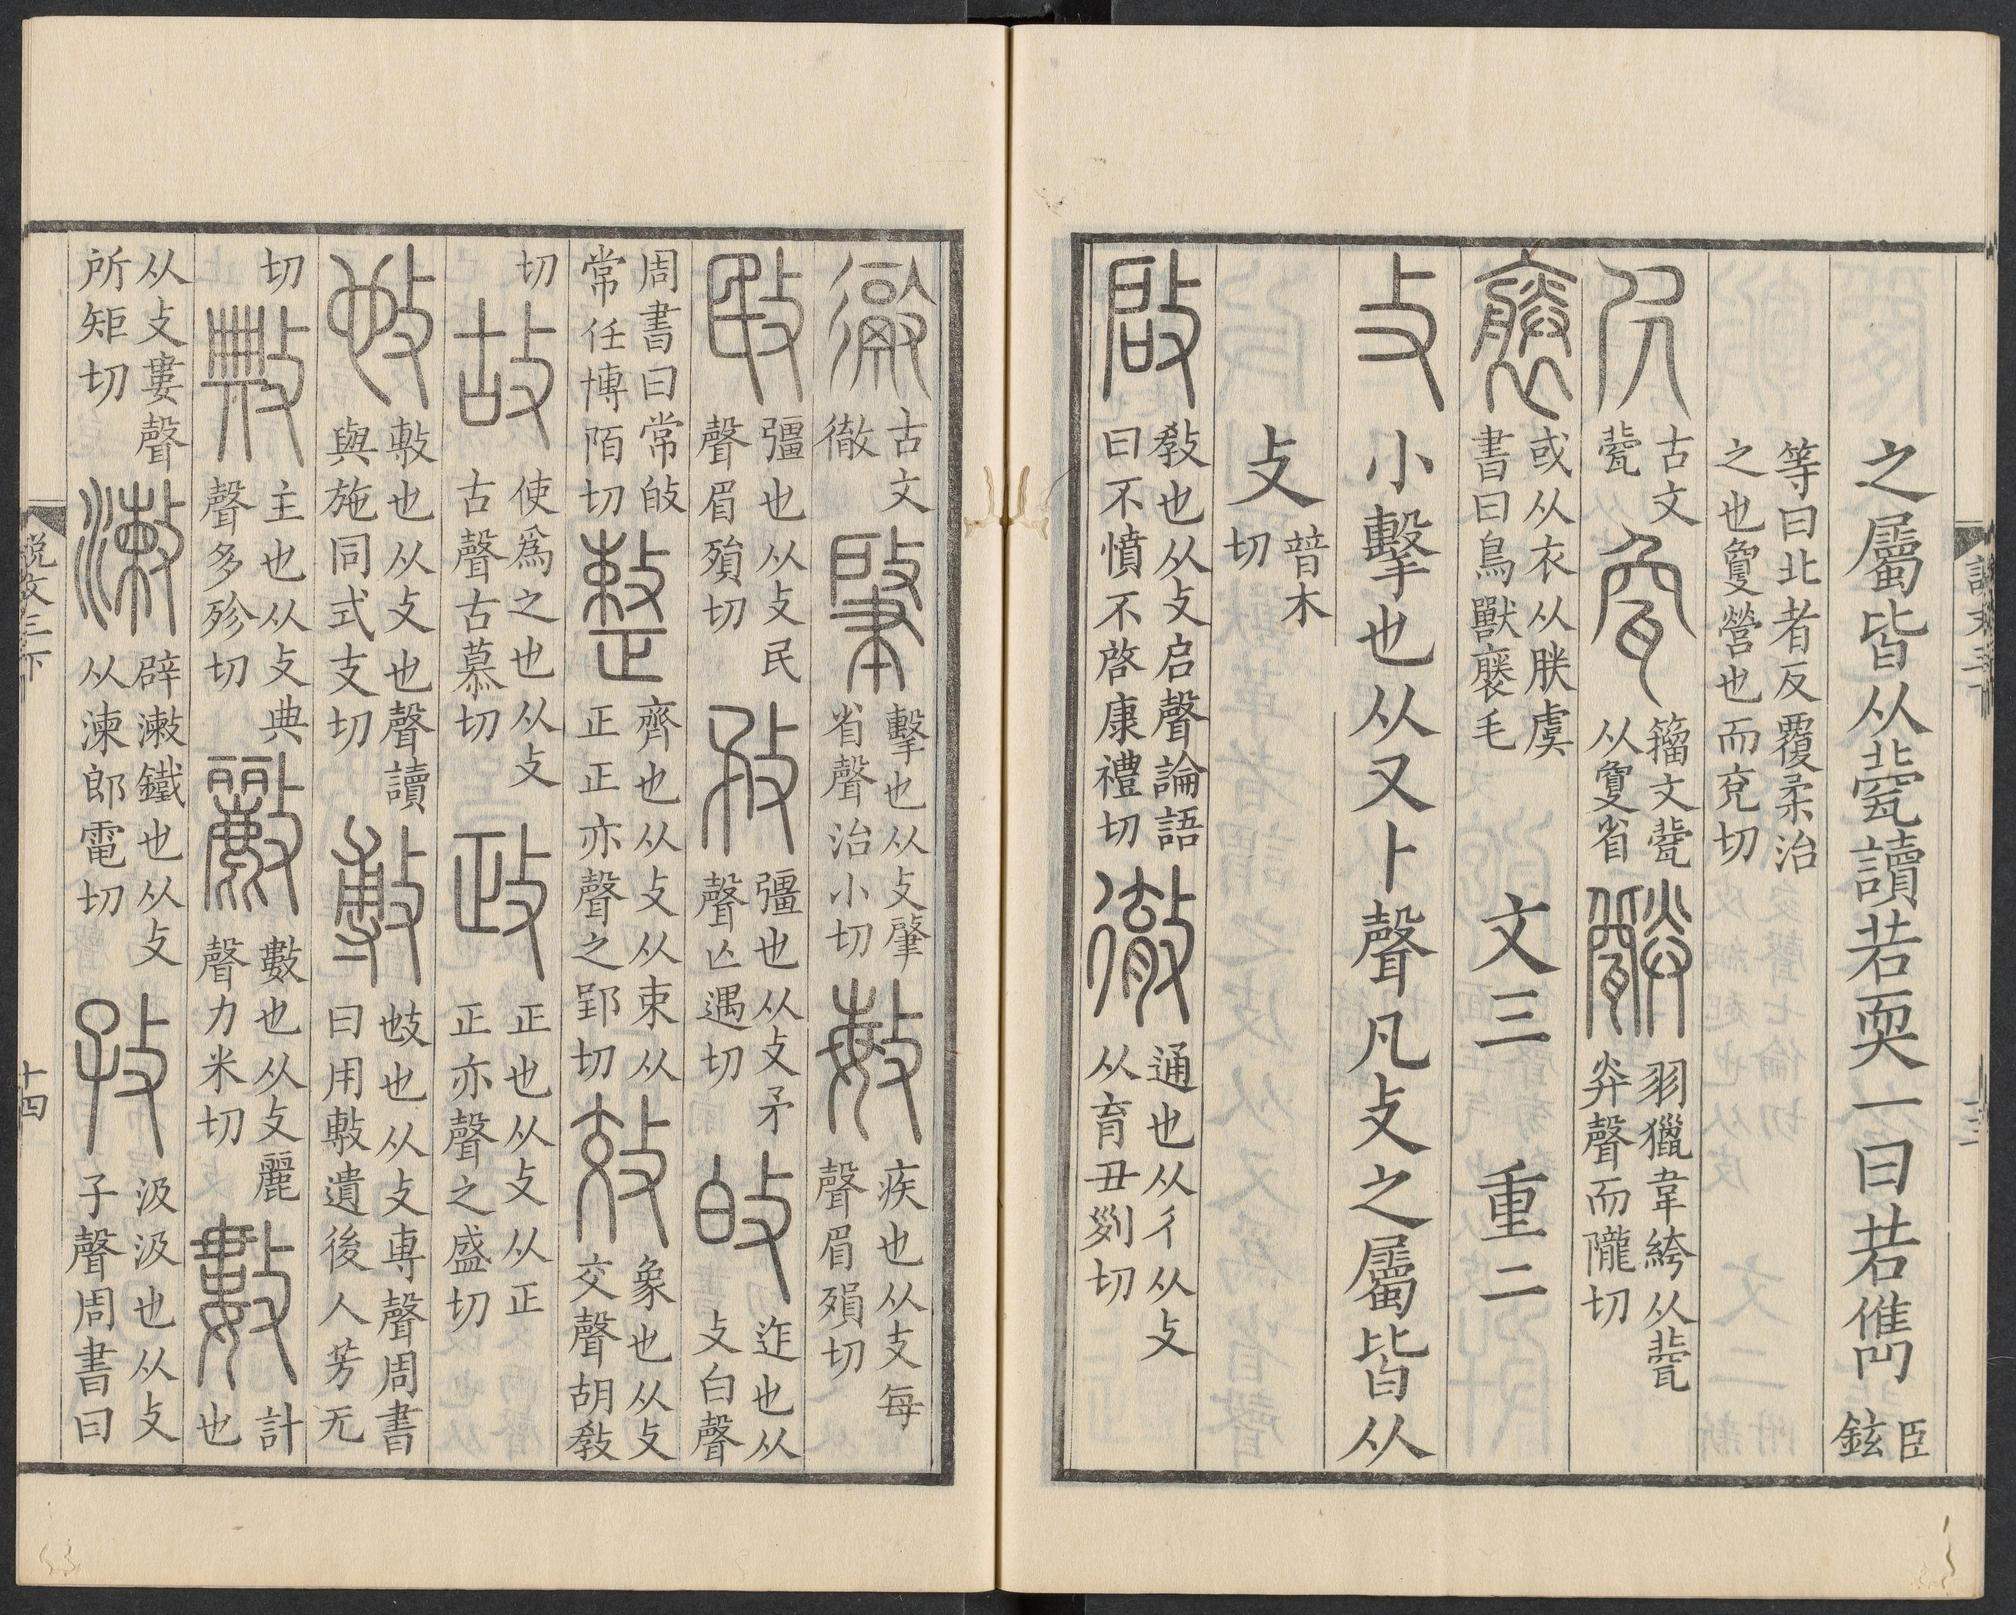 之屬皆从㼱讀若耎一曰若儁臣鉉
等曰北者反覆柔治之也夐營也而兖切
古文㼱 籒文㼱从夐省 羽獵韋絝从㼱灷聲而隴切
襃 或从衣从朕虞書曰鳥獸襃毛 文三 重二
攴 小擊也从又卜聲凡攴之屬皆从
攴 普木切
啟 敎也从攴启聲論語曰不憤不啓康禮切 徹 通也从彳从攴从育丑列切
古文徹 肇 擊也从攴肈省聲治小切 敏 疾也从攴每聲眉殞切
敃 彊也从攴民聲眉殞切 敄 彊也从攴矛聲亾遇切 敀 迮也从攴白聲
周書曰常敀常任博陌切 整 齊也从攴从束从正正亦聲之郢切 效 象也从攴交聲胡敎
切 故 使爲之也从攴古聲古慕切 政 正也从攴从正正亦聲之盛切
𢻱 敷也从攴也聲讀與施同式支切 敷 𢻱也从攴尃聲周書曰用敷遺後人芳无
切 敟 主也从攴典聲多殄切 𢿨 數也从攴麗聲力米切 數 計也
从攴婁聲所矩切 㵃 辟㵃鐵也从攴从湅郎電切 孜 汲汲也从攴子聲周書曰
說文三下
十四